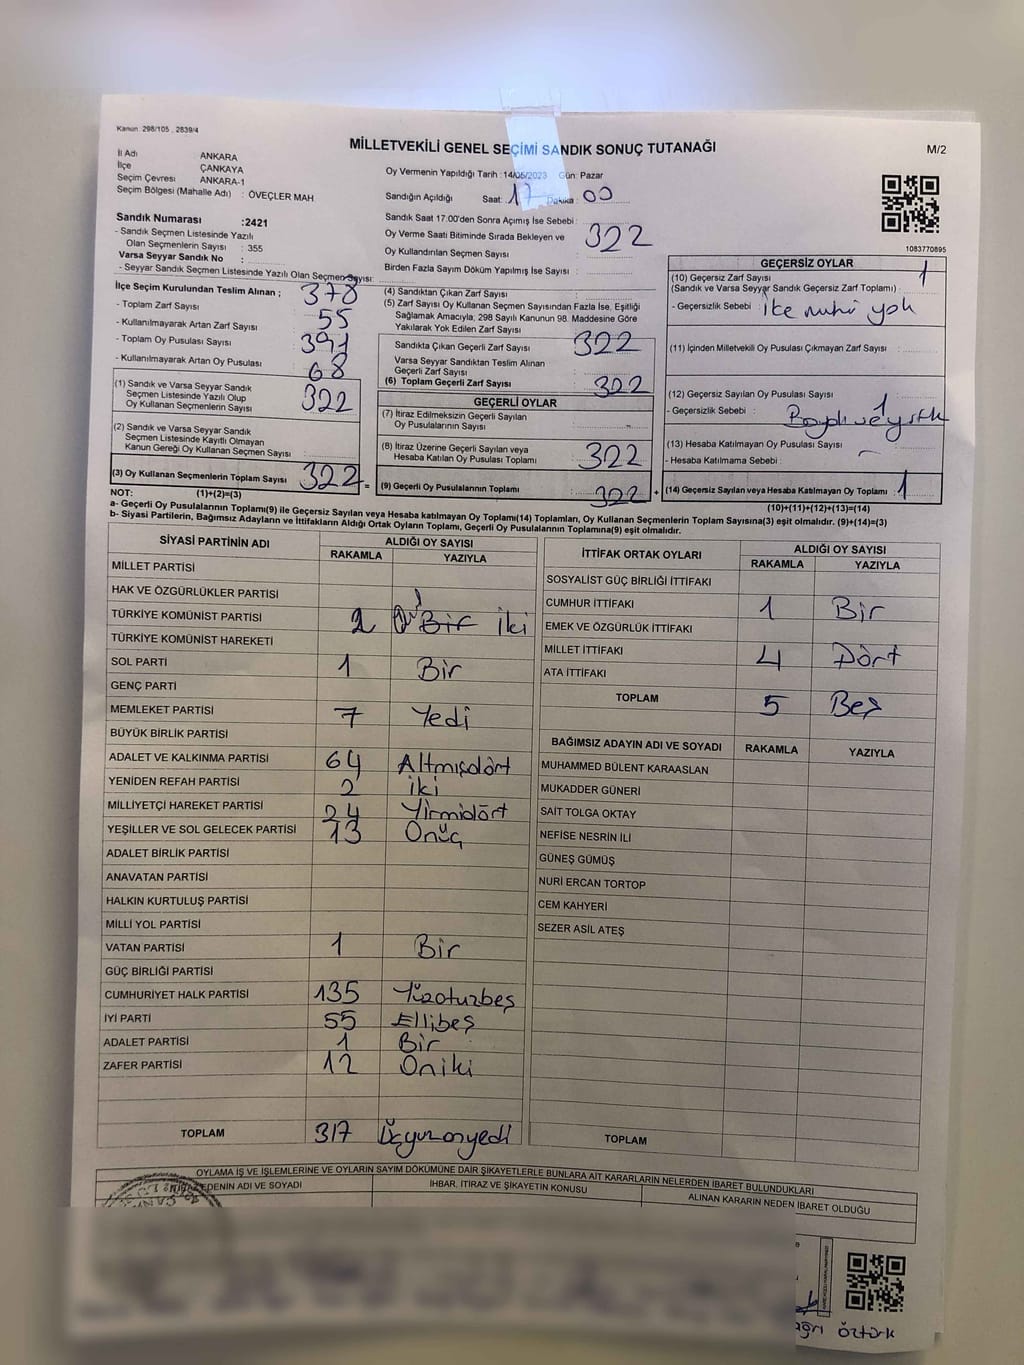 Kanun: 298/105 , 2839/4
MİLLETVEKİLİ GENEL SEÇİMİ SANDIK SONUÇ TUTANAĞI
M/2
İl Adı ANKARA
İlçe ÇANKAYA
Seçim Çevresi ANKARA-1
Seçim Bölgesi (Mahalle Adı) : ÖVEÇLER MAH
Sandık Numarası :2421
- Sandık Seçmen Listesinde Yazılı
Olan Seçmenlerin Sayısı : 355
Varsa Seyyar Sandık No :
- Seyyar Sandık Seçmen Listesinde Yazılı Olan Seçmen Sayısı:
Oy Vermenin Yapıldığı Tarih : 14/05/2023 Gün: Pazar
Sandığın Açıldığı Saat: 17 Dakika : 00
Sandık Saat 17:00'den Sonra Açılmış İse Sebebi :
Oy Verme Saati Bitiminde Sırada Bekleyen ve
Oy Kullandırılan Seçmen Sayısı : 322
Birden Fazla Sayım Döküm Yapılmış İse Sayısı :
1083770895
İlçe Seçim Kurulundan Teslim Alınan ;
- Toplam Zarf Sayısı : 378
- Kullanılmayarak Artan Zarf Sayısı : 55
- Toplam Oy Pusulası Sayısı : 391
- Kullanılmayarak Artan Oy Pusulası : 68
(1) Sandık ve Varsa Seyyar Sandık
Seçmen Listesinde Yazılı Olup
Oy Kullanan Seçmenlerin Sayısı : 322
(2) Sandık ve Varsa Seyyar Sandık
Seçmen Listesinde Kayıtlı Olmayan
Kanun Gereği Oy Kullanan Seçmen Sayısı :
(3) Oy Kullanan Seçmenlerin Toplam Sayısı : 322 =
(4) Sandıktan Çıkan Zarf Sayısı :
(5) Zarf Sayısı Oy Kullanan Seçmen Sayısından Fazla İse, Eşitliği
Sağlamak Amacıyla, 298 Sayılı Kanunun 98. Maddesine Göre
Yakılarak Yok Edilen Zarf Sayısı :
Sandıkta Çıkan Geçerli Zarf Sayısı : 322
Varsa Seyyar Sandıktan Teslim Alınan
Geçerli Zarf Sayısı :
(6) Toplam Geçerli Zarf Sayısı : 322
GEÇERLİ OYLAR
(7) İtiraz Edilmeksizin Geçerli Sayılan
Oy Pusulalarının Sayısı :
(8) İtiraz Üzerine Geçerli Sayılan veya
Hesaba Katılan Oy Pusulası Toplamı : 322
(9) Geçerli Oy Pusulalarının Toplamı : 322 +
GEÇERSİZ OYLAR
(10) Geçersiz Zarf Sayısı
(Sandık ve Varsa Seyyar Sandık Geçersiz Zarf Toplamı) : 1
- Geçersizlik Sebebi : ilçe mührü yok
(11) İçinden Milletvekili Oy Pusulası Çıkmayan Zarf Sayısı :
(12) Geçersiz Sayılan Oy Pusulası Sayısı : 1
- Geçersizlik Sebebi :
(13) Hesaba Katılmayan Oy Pusulası Sayısı :
- Hesaba Katılmama Sebebi :
(14) Geçersiz Sayılan veya Hesaba Katılmayan Oy Toplamı : 1
NOT: (1)+(2)=(3) (10)+(11)+(12)+(13)=(14)
a- Geçerli Oy Pusulalarının Toplamı(9) ile Geçersiz Sayılan veya Hesaba katılmayan Oy Toplamı(14) Toplamları, Oy Kullanan Seçmenlerin Toplam Sayısına(3) eşit olmalıdır. (9)+(14)=(3)
b- Siyasi Partilerin, Bağımsız Adayların ve İttifakların Aldığı Ortak Oyların Toplamı, Geçerli Oy Pusulalarının Toplamına(9) eşit olmalıdır.
SİYASİ PARTİNİN ADI ALDIĞI OY SAYISI
RAKAMLA YAZIYLA
MİLLET PARTİSİ
HAK VE ÖZGÜRLÜKLER PARTİSİ
TÜRKİYE KOMÜNİST PARTİSİ 2 Bir İki
TÜRKİYE KOMÜNİST HAREKETİ
SOL PARTİ 1 Bir
GENÇ PARTİ
MEMLEKET PARTİSİ 7 Yedi
BÜYÜK BİRLİK PARTİSİ
ADALET VE KALKINMA PARTİSİ 64 Altmışdört
YENİDEN REFAH PARTİSİ 2 iki
MİLLİYETÇİ HAREKET PARTİSİ 24 Yirmidört
YEŞİLLER VE SOL GELECEK PARTİSİ 13 Onüç
ADALET BİRLİK PARTİSİ
ANAVATAN PARTİSİ
HALKIN KURTULUŞ PARTİSİ
MİLLİ YOL PARTİSİ
VATAN PARTİSİ 1 Bir
GÜÇ BİRLİĞİ PARTİSİ
CUMHURİYET HALK PARTİSİ 135 Yüzotuzbeş
İYİ PARTİ 55 Ellibeş
ADALET PARTİSİ 1 Bir
ZAFER PARTİSİ 12 Oniki
TOPLAM 317 Üçyüzonyedi
İTTİFAK ORTAK OYLARI ALDIĞI OY SAYISI
RAKAMLA YAZIYLA
SOSYALİST GÜÇ BİRLİĞİ İTTİFAKI
CUMHUR İTTİFAKI 1 Bir
EMEK VE ÖZGÜRLÜK İTTİFAKI
MİLLET İTTİFAKI 4 Dört
ATA İTTİFAKI
TOPLAM 5 Beş
BAĞIMSIZ ADAYIN ADI VE SOYADI RAKAMLA YAZIYLA
MUHAMMED BÜLENT KARAASLAN
MUKADDER GÜNERİ
SAİT TOLGA OKTAY
NEFİSE NESRİN İLİ
GÜNEŞ GÜMÜŞ
NURİ ERCAN TORTOP
CEM KAHYERİ
SEZER ASİL ATEŞ
TOPLAM
OYLAMA İŞ VE İŞLEMLERİNE VE OYLARIN SAYIM DÖKÜMÜNE DAİR ŞİKAYETLERLE BUNLARA AİT KARARLARIN NELERDEN İBARET BULUNDUKLARI
EDENİN ADI VE SOYADI İHBAR, İTİRAZ VE ŞİKAYETİN KONUSU ALINAN KARARIN NEDEN İBARET OLDUĞU
öztürk